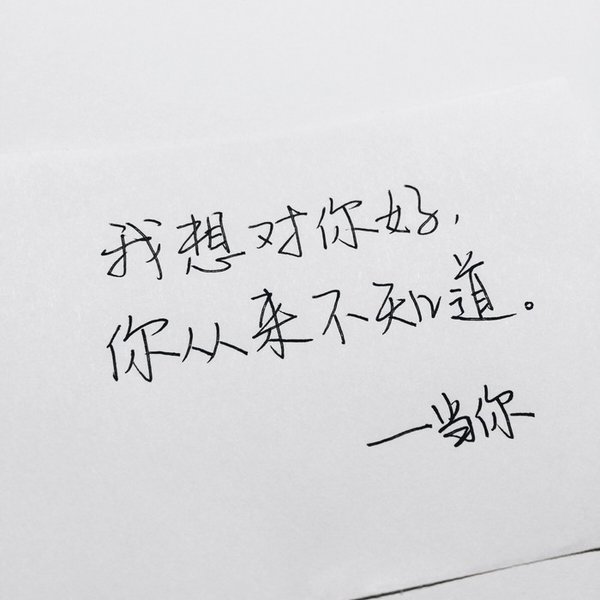 我想对你好,
你从来不知道。
—当你